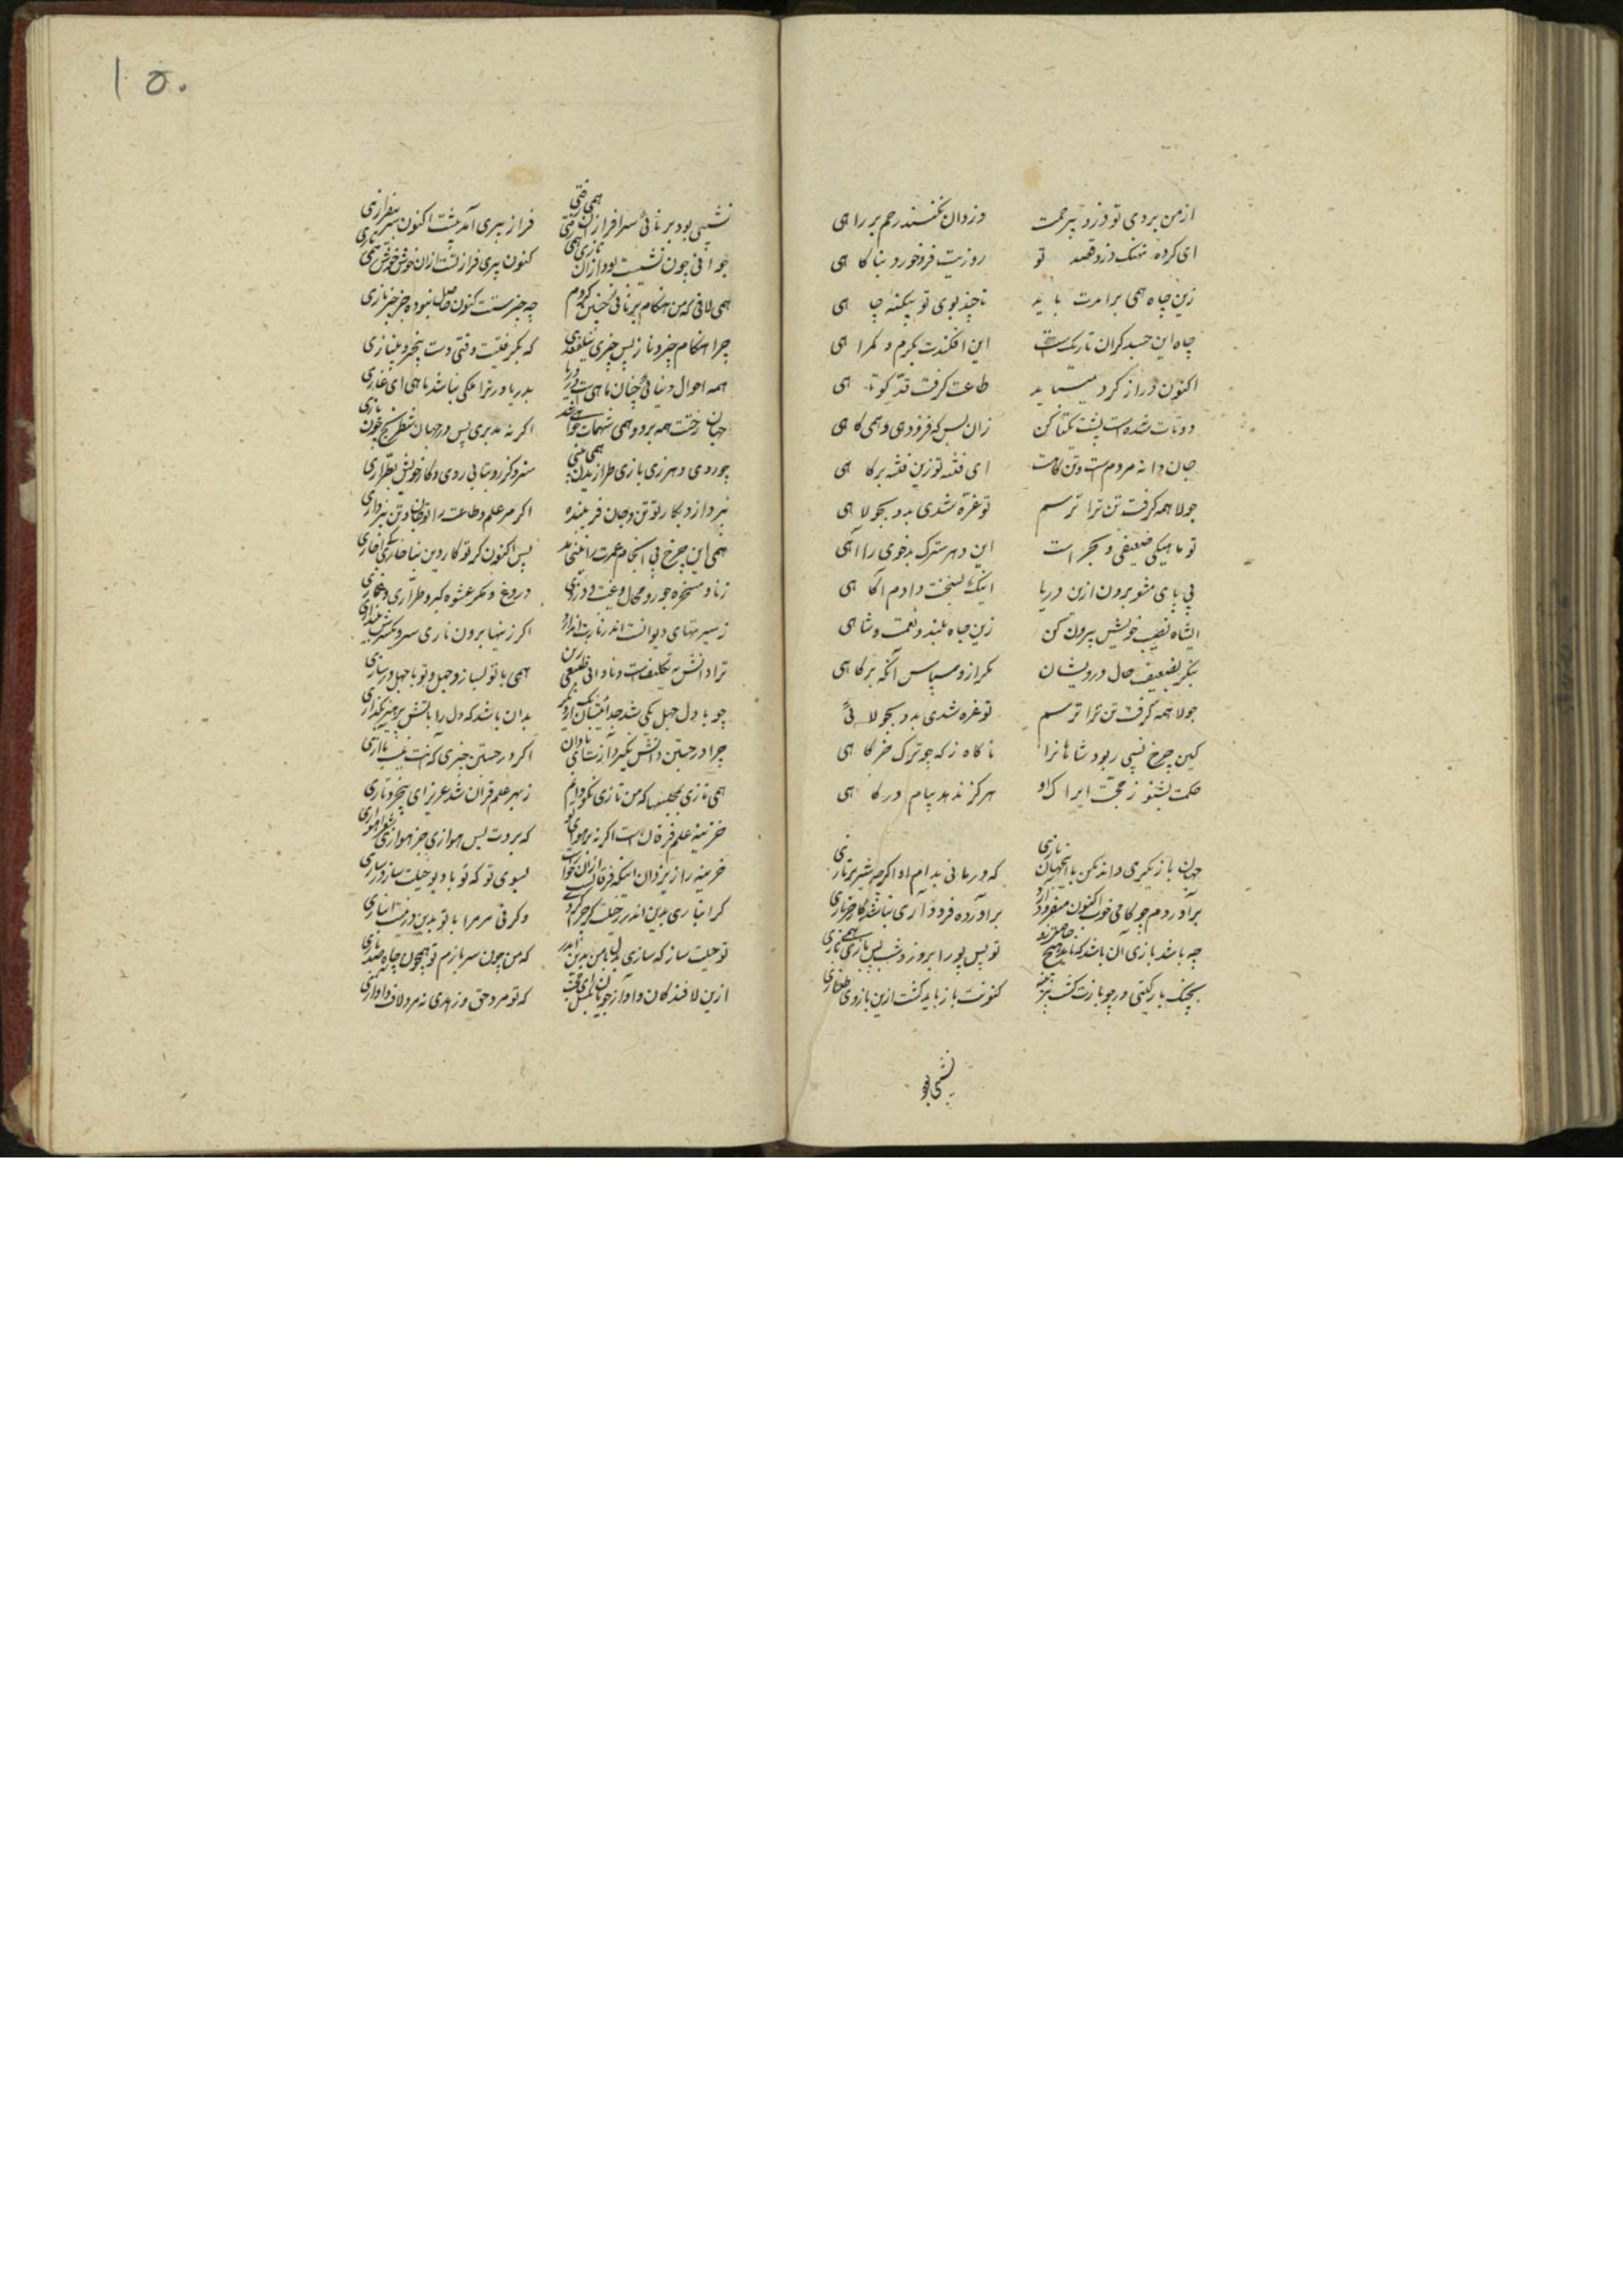 ازمن بردی تو دزد بیرحمت دزدان نکنند رحم بر راهی
ای کرده نهنک دزد قصد تو روزیت فرو خورد بناکاهی
زین چاه همی برامدت باید تا چند بوی تو بیکنه چاهی
چاه این جسد کران تاریکست این افکندت بکرم و کمراهی
اکنون دراز کرد میباید طاعت کرفت قد کوتاهی
دوتات شده است پشت یکتا کن زان پس که فزودهی وهمی کاهی
جان دانه مردم است وتن کاهت ای فتنه تو زین فتنه بر کاهی
جولاهمه کرفت تن ترا ترسم تو غره شدی بدو بجولاهی
تو ماهیکی ضعیفی و بحر است این دهر سترک بدخوی راآهی
بی پای مشو برون ازین دریا اینک بسخنت دادم اکاهی
ایشاه نصیب خویش بیرون کن زین جاه بلند و نعمت و شاهی
بنکر بضعیف حال درویشان بکراز و سپاس آنکه بر کاهی
جولاهمه کرفت تن ترا ترسم تو غره شدی بدو بجولائی
کین چرخ بسی ربود شاهانرا ناکاه زکه چو ترک خرکاهی
حکمت بشنو زحجت ایراک او هرکز ندهد پیام درکاهی
جهان بازیکری داند مکن با اینجهان بازی که درمانی بدام او اکرچه تیز پروازی
برآوردم چوکاخی خوب اکنون میفرود آرد برآورده فرود آری نباشد کار جز بازی
چه باشد بازی آن باشد که ناید هیچ حاصل زو تو پس پورا بروز و شب پس بازی همی تازی
بجنک بارکیتی در چو بازت کشت کنونت باز باید کشت ازین بازی و طنازی
نشیبی بو
۱۵۰
نشیبی بود برنائی سرافرازان همی رفتی فراز پیری آمد پشت اکنون سر بیفرازی
جوانی چون نشیبت بود ازان تازی همی کنون پیری فرازتست ازان خوش خوش همی
همی لافی که من هنکام برنائی چنین کردم چه چیزست کنون حاصل نبوده چیز چیز نازی
چرا هنکام چیز و ناز پس چیزی نیلفغدی که بکریختیت وقتی دست بیچیز و بینازی
همه احوال دنیائی چنان ماهی است در دریا بدریا در ترا ملکی نباشد ماهی ای غازی
جهان رختت همه برد و همی شهمات خواهد شد اکر نه مدبری پس در جهان شطرنج چون بازی
چو روی دهر زی بازی طرازیدن همی بینی سزد کز رو بتابی روی و کار خویش بطرازی
نپردازد بکار تو تن و جان فریبنده اکر مر علم و طاعت را تو جان وتن نپردازی
همی این چرخ بی انجام عمرت را بینجامد پس اکنون کر تو کار دین نیاغازی کی آغازی
زنا و مسخره جور و محال و غیبت و دزدی دروغ و مکر عشوه کبر و طراری و غمازی
ز سیرتهای دیوانست اندر نارت اندازد اکر زینها برون ناری سر و یکسو نیندازی
ترا دانش به تکلیفست و نادانی طبیعی زان همی با تو نسازد جهل و تو با جهل درسازی
چو با دل جهل یکی شد جدائیشان از یکدیکر بدان باشد که دل را بآتش پرهیز بکدازی
چرا در جستن دانش نکیرد آزت ای نادان اکر در جستن چیزی که آنت نیست با آزی
همی تازی بمجلسها که من تازی نکو دانم ز بهر علم قران شد عزیز ای بیخرد تازی
خزینه علم فرقان است اکر نه برهوائی تو که بردت پس هوازی جز هوازی شعر اهوازی
خزینه راز یزدان اسکه فرقانست ازان خواند بسوی تو که تو با دیو حیلت ساز و در سازی
کر انبازی بدین اندر ز حیلت کر حذر کردی وکرنی مر مرا با تو بدین در نیست انبازی
تو حیلت ساز که سازی لیکن با من بدین اندر که من چون سر بسازم تو همچون چاه صد بازی
ازین لافندکان و آواز جویان بکسل ای حجت که تو مرد حق و زهدی نه مرد لاف و آوازی